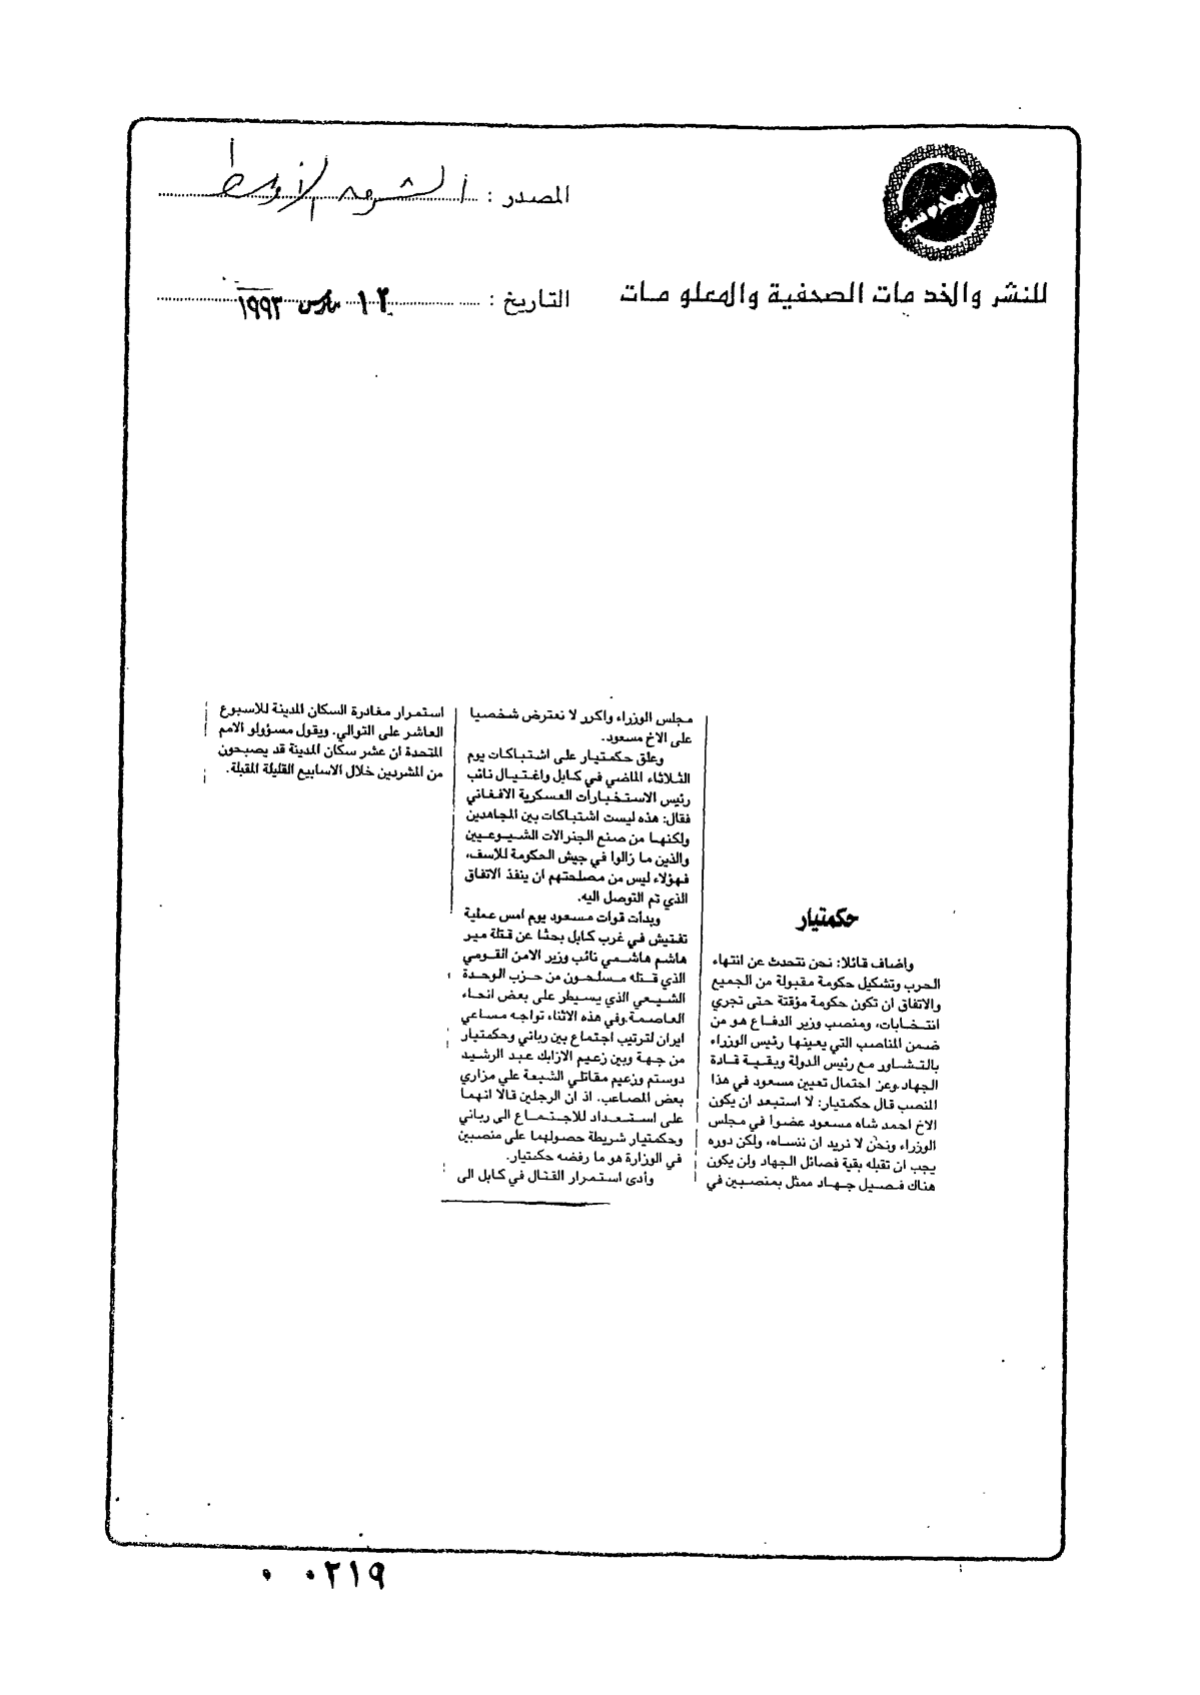 المصدر : الشرق الأوسط
للنشر والخدمات الصحفية والمعلومات
التاريخ : ١٣ مارس ١٩٩٣
حكمتيار
واضاف قائلا: نحن نتحدث عن انتهاء
الحرب وتشكيل حكومة مقبولة من الجميع
والاتفاق ان تكون حكومة مؤقتة حتى تجري
انتخابات، ومنصب وزير الدفاع هو من
ضمن المناصب التي يعينها رئيس الوزراء
بالتشاور مع رئيس الدولة وبقية قادة
الجهاد. وعن احتمال تعيين مسعود في هذا
المنصب قال حكمتيار: لا استبعد ان يكون
الاخ احمد شاه مسعود عضوا في مجلس
الوزراء ونحن لا نريد ان ننساه، ولكن دوره
يجب ان تقبله بقية فصائل الجهاد ولن يكون
هناك فصيل جهاد ممثل بمنصبين في
مجلس الوزراء واكرر لا نعترض شخصيا
على الاخ مسعود.
وعلق حكمتيار على اشتباكات يوم
الثلاثاء الماضي في كابل واغتيال نائب
رئيس الاستخبارات العسكرية الافغاني
فقال: هذه ليست اشتباكات بين المجاهدين
ولكنها من صنع الجنرالات الشيوعيين
والذين ما زالوا في جيش الحكومة للاسف،
فهؤلاء ليس من مصلحتهم ان ينفذ الاتفاق
الذي تم التوصل اليه.
وبدأت قوات مسعود يوم امس عملية
تفتيش في غرب كابل بحثا عن قتلة مير
هاشم هاشمي نائب وزير الامن القومي
الذي قتله مسلحون من حزب الوحدة
الشيعي الذي يسيطر على بعض انحاء
العاصمة. وفي هذه الاثناء تواجه مساعي
ايران لترتيب اجتماع بين رباني وحكمتيار
من جهة وبين زعيم الازابك عبد الرشيد
دوستم وزعيم مقاتلي الشيعة علي مزاري
بعض المصاعب. اذ ان الرجلين قالا انهما
على استعداد للاجتماع الى رباني
وحكمتيار شريطة حصولهما على منصبين
في الوزارة هو ما رفضه حكمتيار.
وأدى استمرار القتال في كابل الى
استمرار مغادرة السكان المدينة للاسبوع
العاشر على التوالي. ويقول مسؤولو الامم
المتحدة ان عشر سكان المدينة قد يصبحون
من المشردين خلال الاسابيع القليلة المقبلة.
٠٠٢١٩